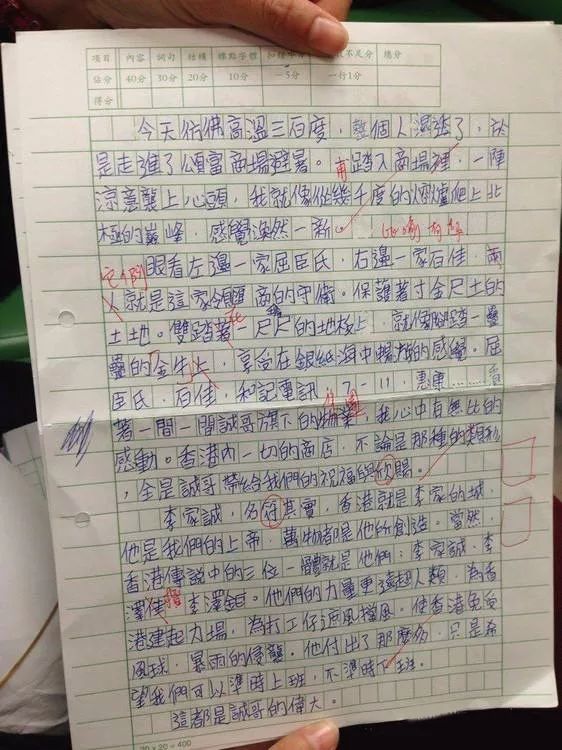 項目 內容 詞句 結構 標點字體 總分
佔分 40分 30分 20分 10分 －5分 一行1分
得分
今天彷彿高溫三百度，整個人濕透了，於
是走進了頌富商場避暑。甫踏入商場裡，一陣
涼意襲上心頭，我就像從幾千度的熔爐爬上北
極的巔峰，感覺渙然一新。
它們
眼看左邊一家屈臣氏，右邊一家百佳，兩
人就是這家商的守衛。保護著寸金尺土的
土地。雙踏著一尺尺的地板上，就像腳踏一疊
疊的金牛上，享受在銀紙海中的感覺。屈
臣氏，百佳，和記電訊，7-11，惠康……看
著一間一間誠哥旗下的物業，我心中有無比的
感動。香港內一切的商店，不論是那種的類別
，全是誠哥帶給我們的祝福與欣賜。
李家誠，名符其實，香港就是李家的城，
他是我們的上帝，萬物都是他所創造。當然，
香港傳說中的三位一體就是他們：李家誠，李
澤佳，李澤鉅。他們的力量更遠超人類，為香
港建起力場，為打工仔遮風擋風。使香港免受
風球，暴雨的侵襲。他付出了那麼多，只是希
望我們可以準時上班，不準時下班。
這都是誠哥的偉大。
20×20=400